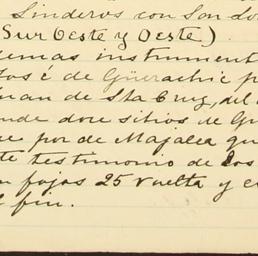 Linderos con San Lo
(Sur Oeste y Oeste)
emas instrument
tos é de Güerachic p
uan de Sta Cruz, del
nde doce sitios de Gu
e por de Majalca qu
te testimonio de los
n fojas 25 vuelta y e
l fin.